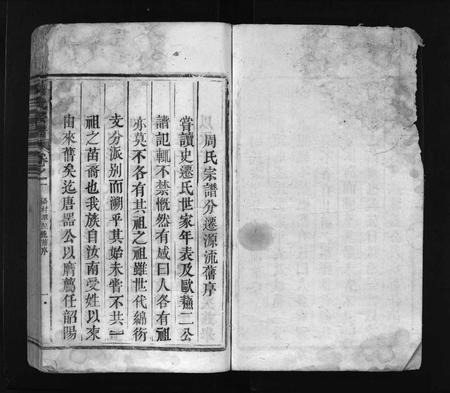 周氏宗譜分遷源流舊序
嘗讀史遷氏世家年表及歐蘇二公
譜記輒不禁慨然有感曰人各有祖
亦莫不各有其祖之祖雖世代綿衍
支分派別而溯乎其始未甞不共一
祖之苗裔也我族自汝南受姓以來
由來舊矣迄唐諱公以膺薦任韶陽
卷之一
舊序